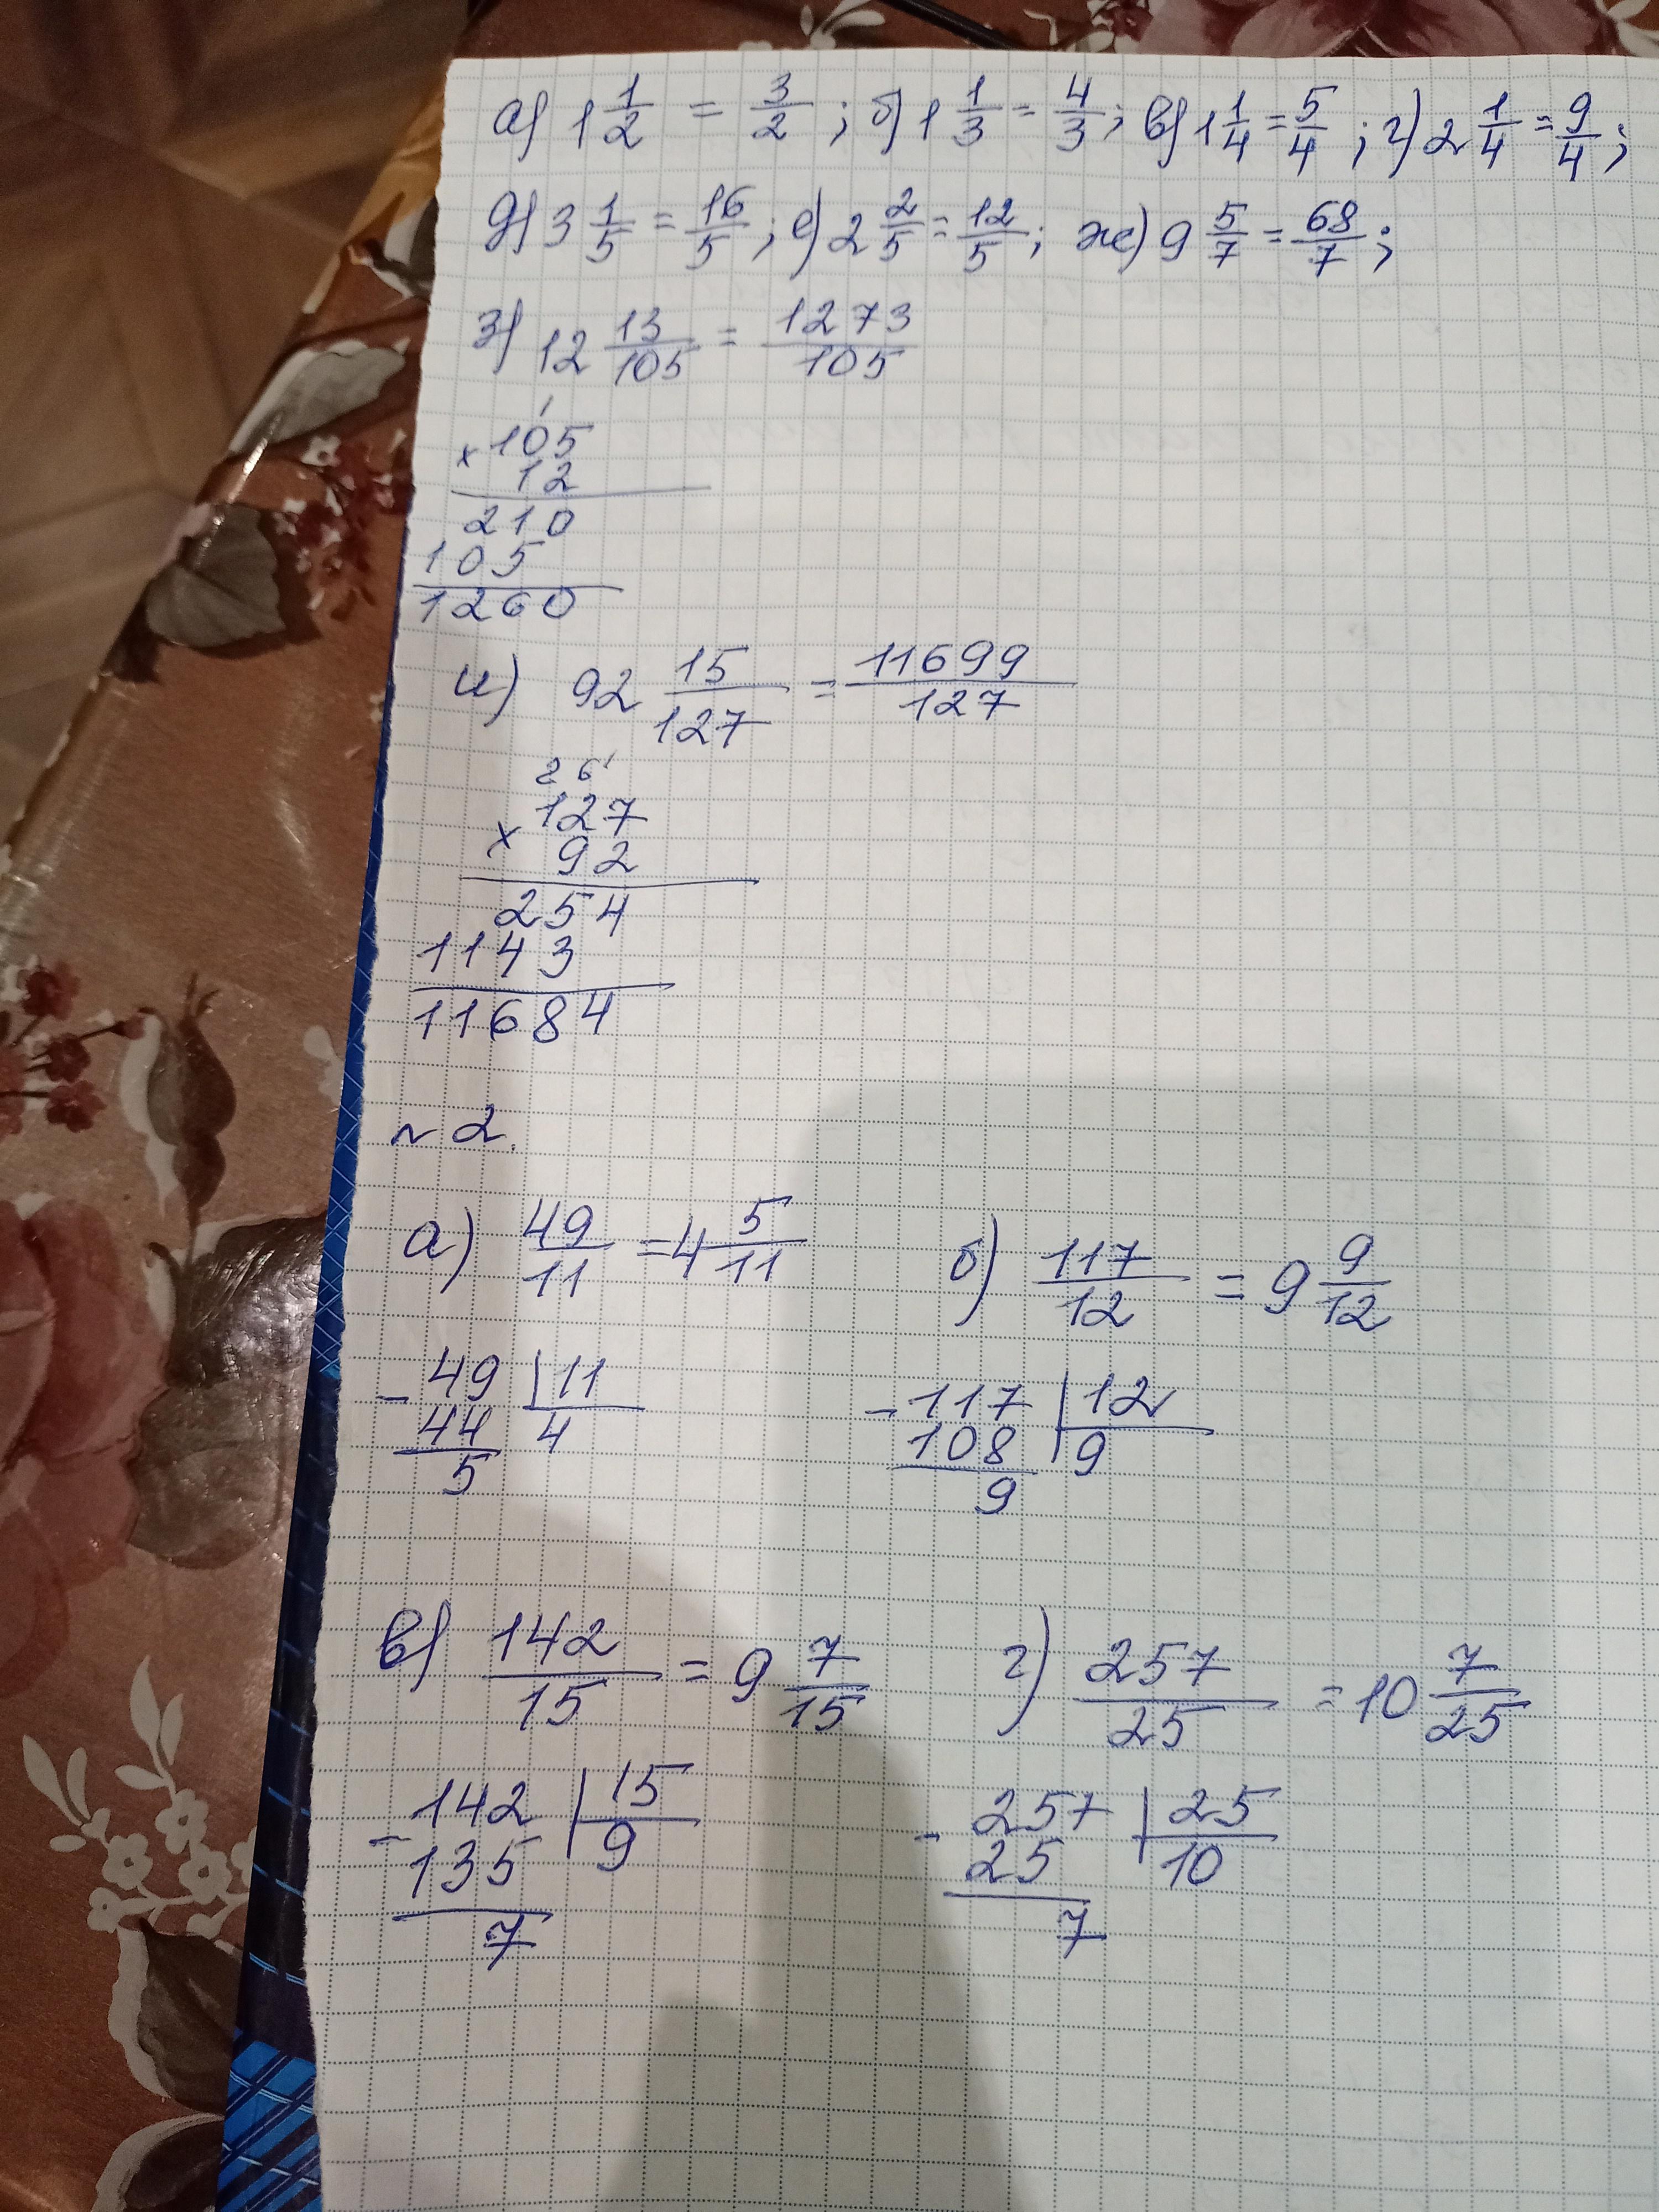 а) 1 1/2 = 3/2; б) 1 1/3 = 4/3; в) 1 1/4 = 5/4; г) 2 1/4 = 9/4;
д) 3 1/5 = 16/5; е) 2 2/5 = 12/5; ж) 9 5/7 = 68/7;
з) 12 13/105 = 1273/105
1
× 105
12
210
105
1260
и) 92 15/127 = 11699/127
2 6 1
× 127
92
254
1143
11684
№ 2.
а) 49/11 = 4 5/11 б) 117/12 = 9 9/12
- 49 | 11 - 117 | 12
44 4 108 9
5 9
в) 142/15 = 9 7/15 г) 257/25 = 10 7/25
- 142 | 15 - 257 | 25
135 9 25 10
7 7